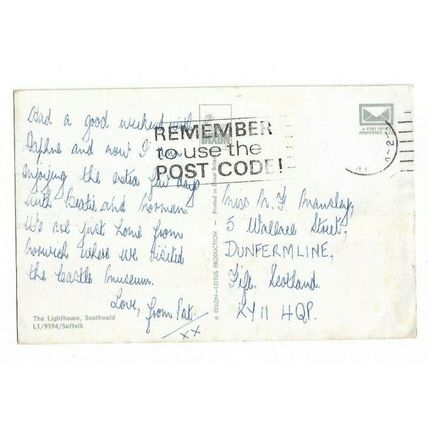 Had a good weekend with
Daphne and now I am
enjoying the extra few days
with Beatie and Norman.
We are just home from
Norwich where we visited
the Castle Museum.
Love, from Pat.
xx
The Lighthouse, Southwold
LT/9194/Suffolk
REMEMBER
to use the
POST CODE!
DIXON
A DIXON-LOTUS PRODUCTION - Printed in Great Britain
A POST OFFICE
PREFERRED
Miss M. F. Mansley,
5 Wallace Street,
DUNFERMLINE,
Fife. Scotland.
KY11 4QP.